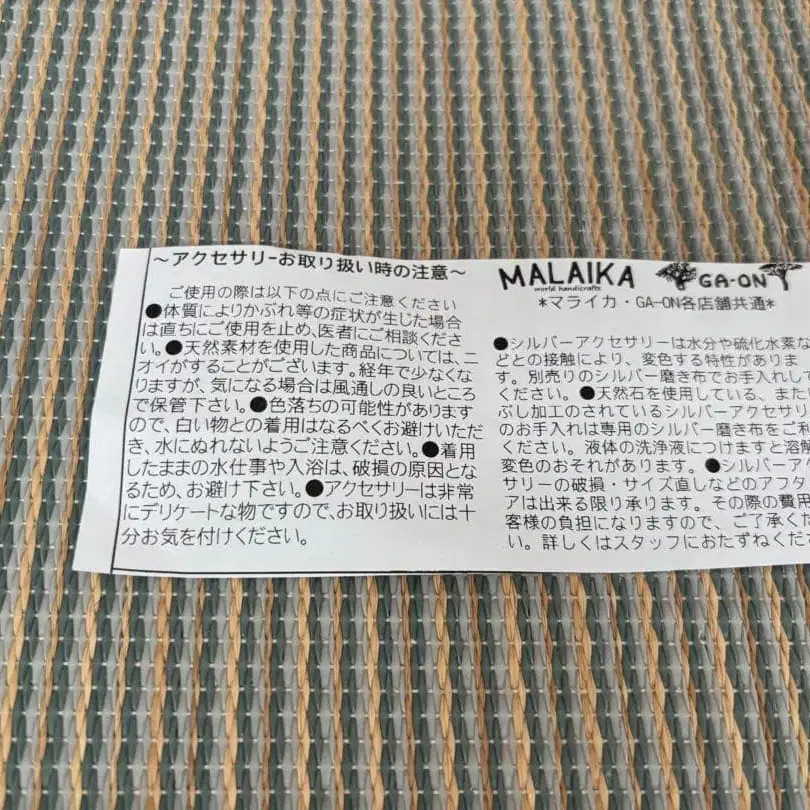 ～アクセサリーお取り扱い時の注意～
ご使用の際は以下の点にご注意ください
●体質によりかぶれ等の症状が生じた場合
は直ちにご使用を止め、医者にご相談くださ
い。●天然素材を使用した商品については、ニ
オイがすることがございます。経年で少なくな
りますが、気になる場合は風通しの良いところ
で保管下さい。●色落ちの可能性があります
ので、白い物との着用はなるべくお避けいただ
き、水にぬれないようご注意ください。●着用
したままの水仕事や入浴は、破損の原因とな
るため、お避け下さい。●アクセサリーは非常
にデリケートな物ですので、お取り扱いには十
分お気を付けください。
MALAIKA GA-ON
world handicrafts
*マライカ・GA-ON各店舗共通*
●シルバーアクセサリーは水分や硫化水薬な
どとの接触により、変色する特性がありま
す。別売りのシルバー磨き布でお手入れして
ください。●天然石を使用している、また
ぶし加工のされているシルバーアクセサリ
のお手入れは専用のシルバー磨き布をご利
ください。液体の洗浄液につけますと溶解
変色のおそれがあります。●シルバーアク
サリーの破損・サイズ直しなどのアフタ
アは出来る限り承ります。その際の費用
客様の負担になりますので、ご了承くだ
い。詳しくはスタッフにおたずねくださ